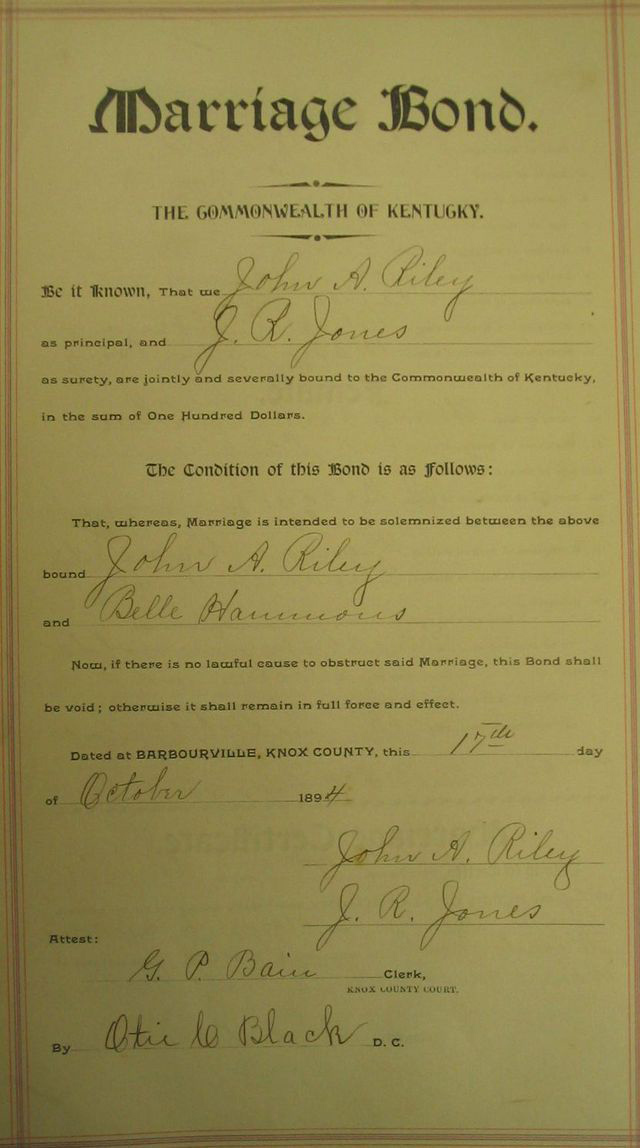 Marriage Bond.
THE COMMONWEALTH OF KENTUCKY.
Be it Known, That we John A. Riley
as principal, and J. R. Jones
as surety, are jointly and severally bound to the Commonwealth of Kentucky,
in the sum of One Hundred Dollars.
The Condition of this Bond is as Follows:
That, whereas, Marriage is intended to be solemnized between the above
bound John A. Riley
and Belle Hammons
Now, if there is no lawful cause to obstruct said Marriage, this Bond shall
be void; otherwise it shall remain in full force and effect.
Dated at BARBOURVILLE, KNOX COUNTY, this 17th day
of October 1894
John A. Riley
J. R. Jones
Attest:
G. P. Bain Clerk,
KNOX COUNTY COURT.
By Black D. C.